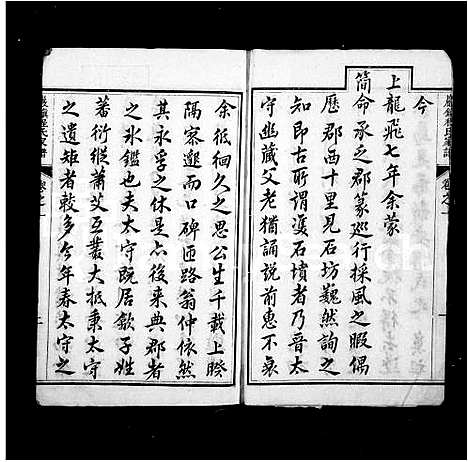 今
上龍飛七年余蒙
簡命承乏郡篆巡行採風之暇偶
歷郡西十里見石坊巍然詢之
知即古所謂選石墳者乃晉太
守幽藏父老猶誦說前惠不衰
余低徊久之思公生千載上暌
隔寥邈而口碑匝路翁仲依然
其永孚之休是亦後來典郡者
之氷鑑也夫太守既居歙子姓
蕃衍縱蕭艾互叢大抵秉太守
之遺矩者較多今年春太守之